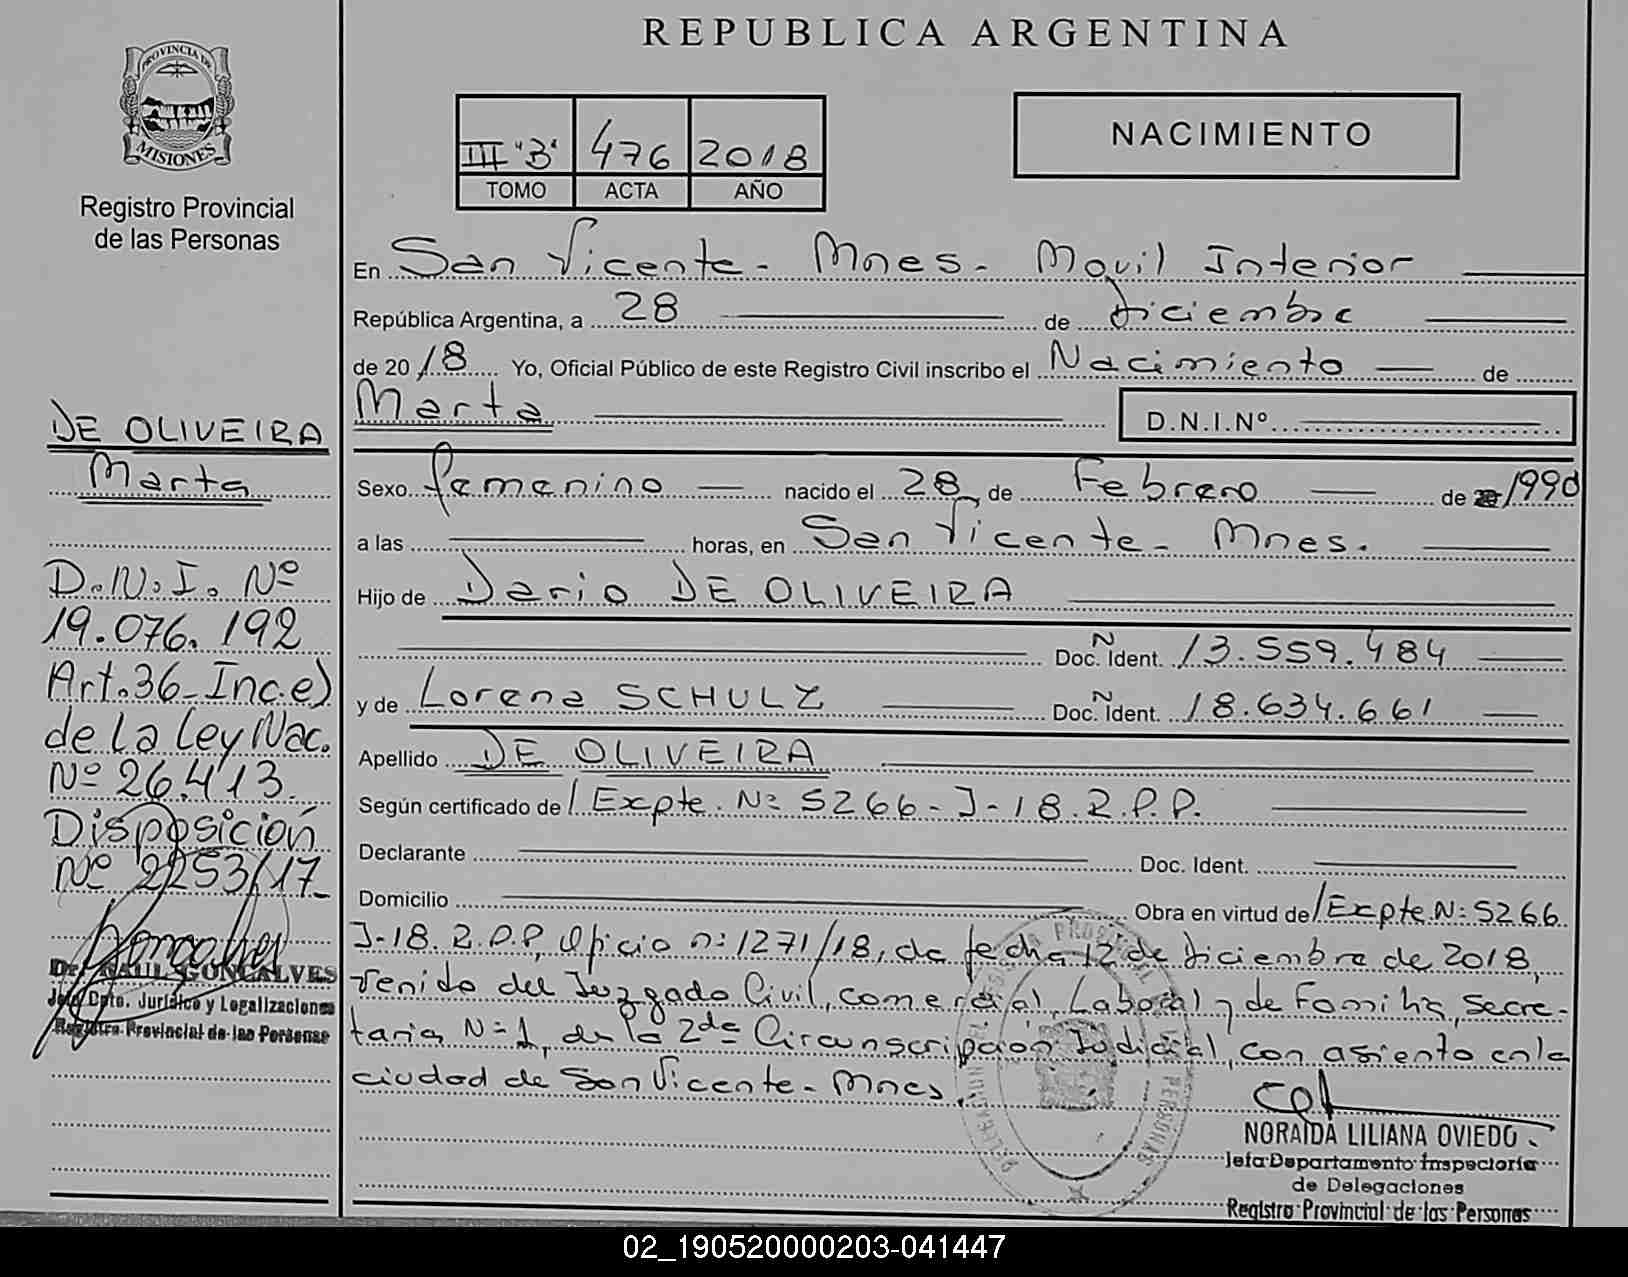 PROVINCIA DE
MISIONES
Registro Provincial
de las Personas
DE OLIVEIRA
Marta
D.N.I. Nº
19.076.192
Art.36-Inc.e)
de la Ley Nac.
Nº 26.413.
Disposición
Nº 2253/17-
Dr. RAUL GONCALVES
Jefe Dpto. Jurídico y Legalizaciones
Registro Provincial de las Personas
REPUBLICA ARGENTINA
III "B" 476 2018
TOMO ACTA AÑO
NACIMIENTO
En San Vicente - Mnes - Movil Interior
República Argentina, a 28 de diciembre
de 2018 Yo, Oficial Público de este Registro Civil inscribo el Nacimiento de
Marta D.N.I.Nº
Sexo femenino nacido el 28 de Febrero de 1990
a las horas, en San Vicente - Mnes.
Hijo de Dario DE OLIVEIRA
Doc. Ñ Ident. 13.559.484
y de Lorena SCHULZ Doc. Ñ Ident. 18.634.661
Apellido DE OLIVEIRA
Según certificado de / Expte. Nº 5266-J-18.R.P.P.
Declarante Doc. Ident.
Domicilio Obra en virtud de / Expte.Nº 5266
J-18.R.P.P, oficio nº 1271/18, de fecha 12 de diciembre de 2018,
venido del Juzgado Civil, comercial, Laboral y de Familia, Secre-
taria Nº 1, de la 2da Circunscripción Judicial, con asiento en la
ciudad de San Vicente - Mnes.
NORAIDA LILIANA OVIEDO
Jefa Departamento Inspectoria
de Delegaciones
Registro Provincial de las Personas
02_190520000203-041447